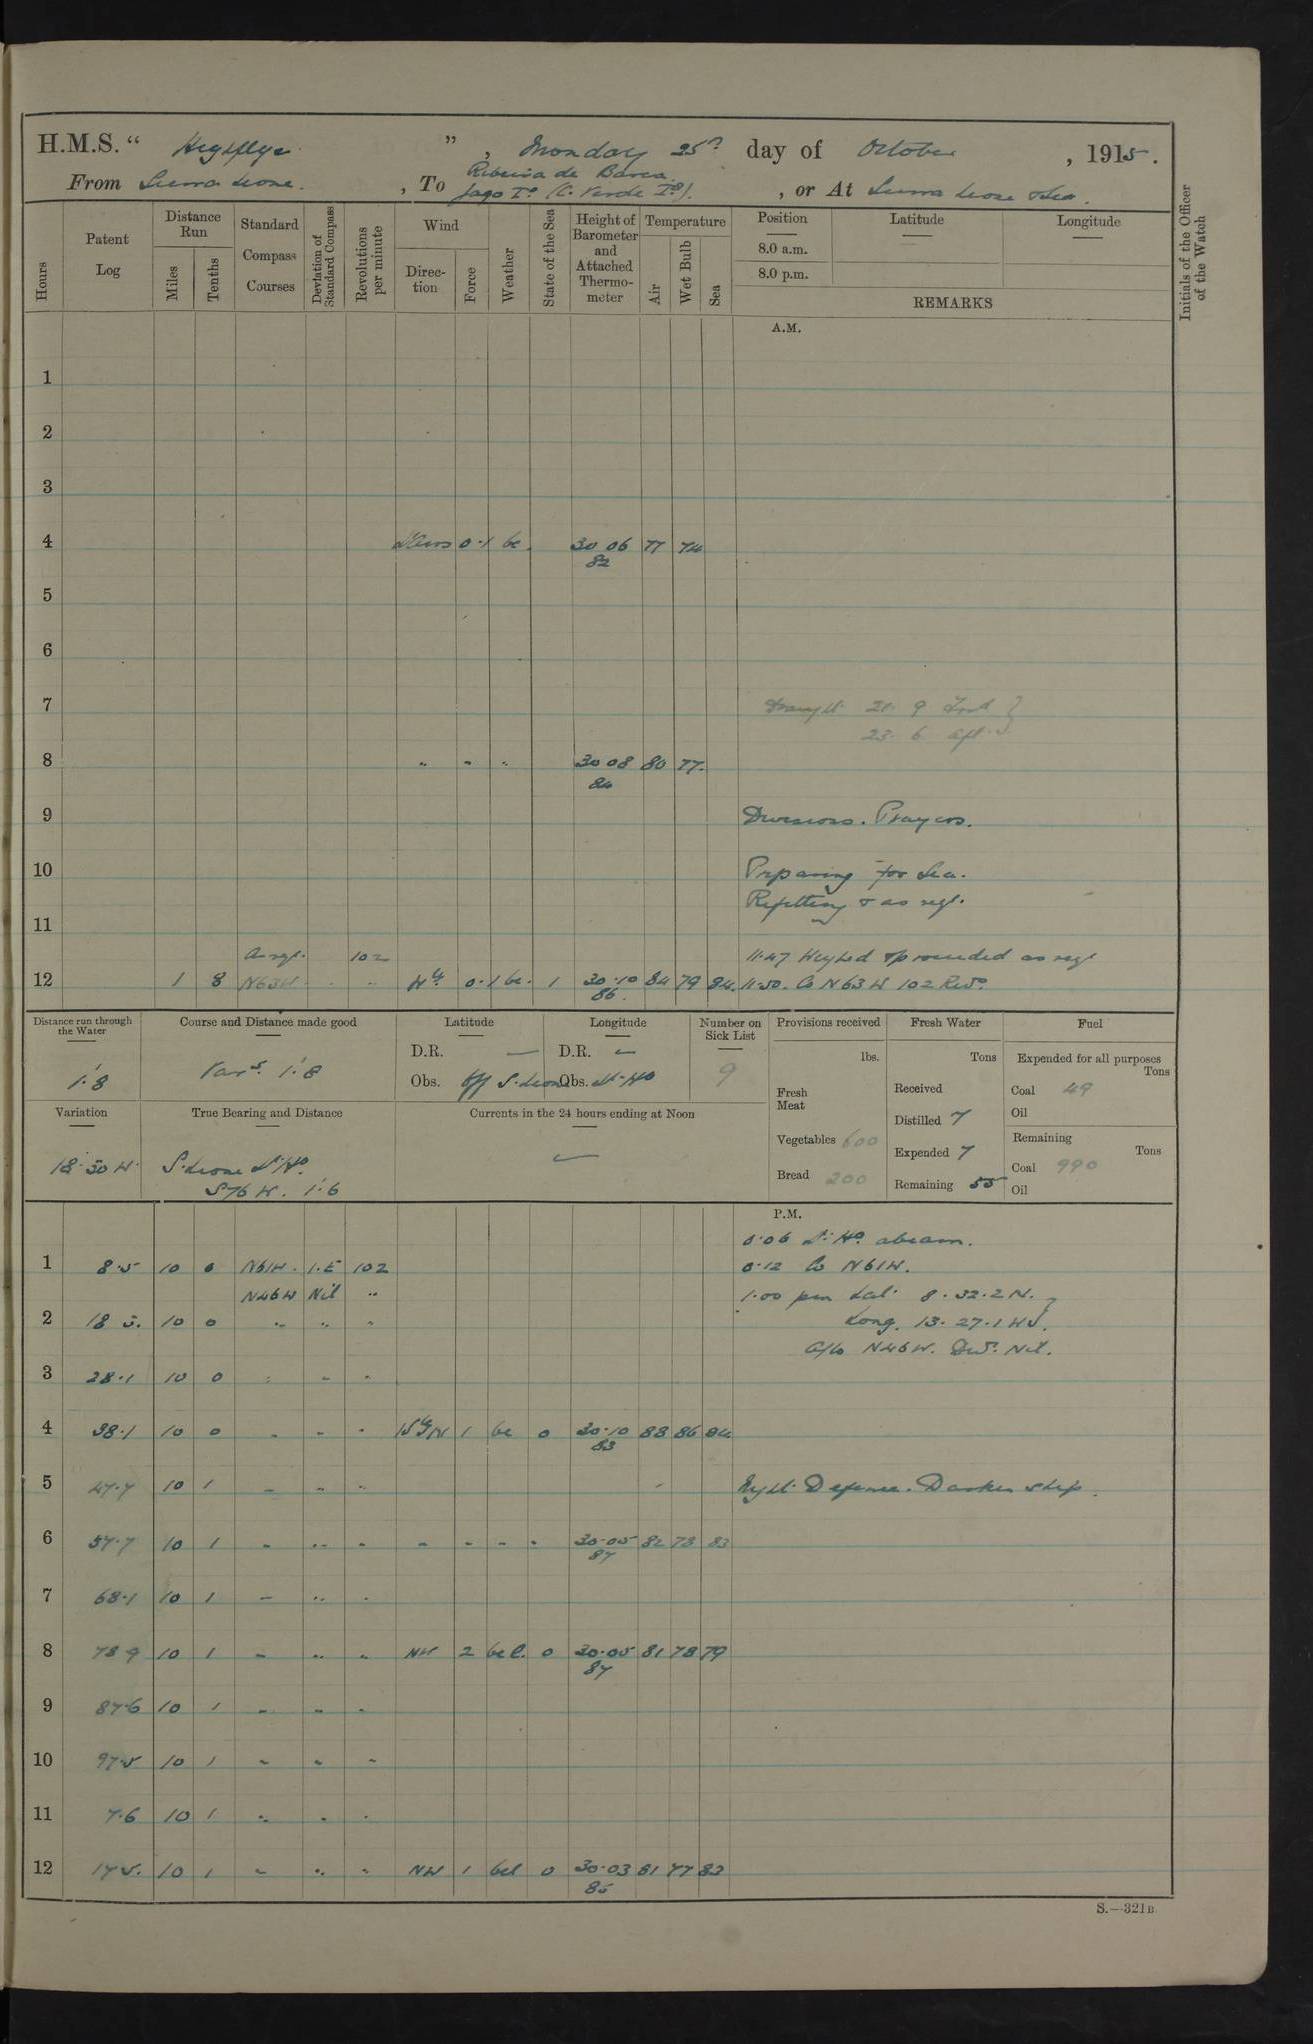 H.M.S. “ Highflyer ” , Monday 25th day of October , 1915 .
From Sierra Leone. , To Ribeira de Barca Jago Id (C. Verde Ids). , or At Sierra Leone & Sea .
Hours
Patent Log
Distance Run
Miles
Tenths
Standard Compass Courses
Deviation of Standard Compass
Revolutions per minute
Wind
Direction
Force
Weather
State of the Sea
Height of Barometer and Attached Thermometer
Temperature
Air
Wet Bulb
Sea
Position
Latitude
Longitude
8.0 a.m.
8.0 p.m.
REMARKS
Initials of the Officer of the Watch
A.M.
1
2
3
4 0·1 bc. 30 06 77 74
82
5
6
7 Draught 21. 9 Ford
23. 6 Aft.
8 " " " 30 08 80 77.
84
9 Divisions. Prayers.
10 Preparing for Sea.
Refitting & as reqd.
11
As reqd. 102 11.47 Weighed & proceeded as reqd
12 1 8 N63W " " Wly 0·1 bc. 1 30·10 84 79 84. 11.50. Co N63W 102 Revs.
86.
Distance run through the Water
1·8
Course and Distance made good
Vars. 1·8
Latitude
D.R. —
Obs. Off S. Leone
Longitude
D.R. —
Obs. Lt Ho
Number on Sick List
9
Provisions received
lbs.
Fresh Meat
Vegetables 600
Bread 200
Fresh Water
Tons
Received
Distilled 7
Expended 7
Remaining 55
Fuel
Expended for all purposes
Tons
Coal 49
Oil
Remaining
Tons
Coal 990
Oil
Variation
18·30 W.
True Bearing and Distance
S. Leone Lt Ho.
S76W. 1·6
Currents in the 24 hours ending at Noon
P.M.
0·06 Lt Ho abeam.
1 8·5 10 0 N61W. 1.E 102 0·12 Co N61W.
N46W Nil " 1·00 pm Lat. 8. 32. 2 N.
2 18 5. 10 0 " " " Long. 13. 27. 1 W.
A/Co N46W. Dev. Nil.
3 28·1 10 0 " " "
4 38·1 10 0 " " " WyN 1 bc 0 30·10 88 86 84
83
5 47·7 10 1 " " " Night Defence. Darken ship.
6 57·7 10 1 " " " " " " " 30·05 82 78 83
87
7 68·1 10 1 " " "
8 78 9 10 1 " " " NW 2 bcl. 0 30·05 81 78 79
87
9 87·6 10 1 " " "
10 97·5 10 1 " " "
11 7·6 10 1 " " "
12 17 5. 10 1 " " " NW 1 bcl 0 30·03 81 77 83
85
S.—321B.